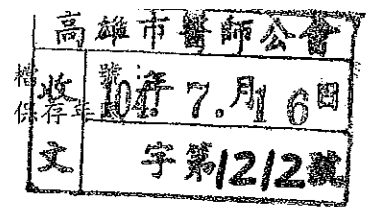 高雄市醫師公會
檔號：
保存年
收 104年 7.月16日
文 字第1212號